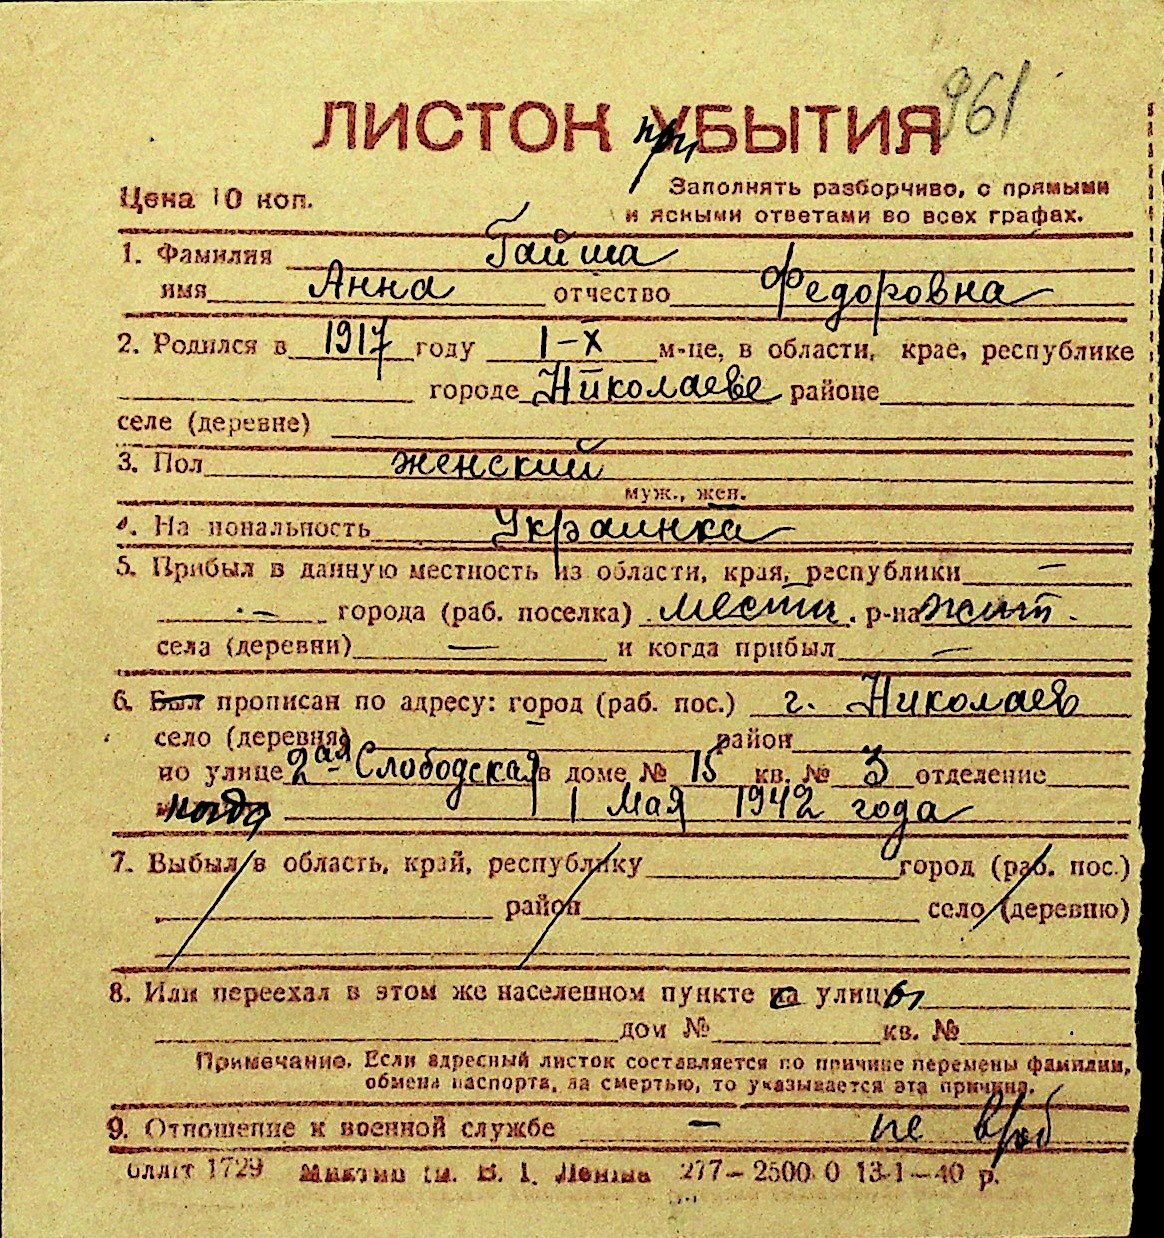 961
ЛИСТОК при УБЫТИЯ
Цена 10 коп.
Заполнять разборчиво, с прямыми
и ясными ответами во всех графах.
1. Фамилия Гайша
имя Анна отчество Федоровна
2. Родился в 1917 году 1-X м-це, в области, крае, республике
городе Николаеве районе
селе (деревне)
3. Пол женский
муж., жен.
4. На иональность Украинка
5. Прибыл в данную местность из области, края, республики —
— города (раб. поселка) местн. р-на жит.
села (деревни) — и когда прибыл —
6. Был прописан по адресу: город (раб. пос.) г. Николаев
село (деревня) район
по улице 2ая Слободская в доме № 15 кв. № 3 отделение
когда 1 Мая 1942 года
7. Выбыл в область, край, республику город (раб. пос.)
район село (деревню)
8. Или переехал в этом же населенном пункте с улицы
дом № кв. №
Примечание. Если адресный листок составляется по причине перемены фамилии,
обмена паспорта, за смертью, то указывается эта причина.
9. Отношение к военной службе — не в/об
1729 В. І. Леніна 277—2500 0 13-1—40 р.